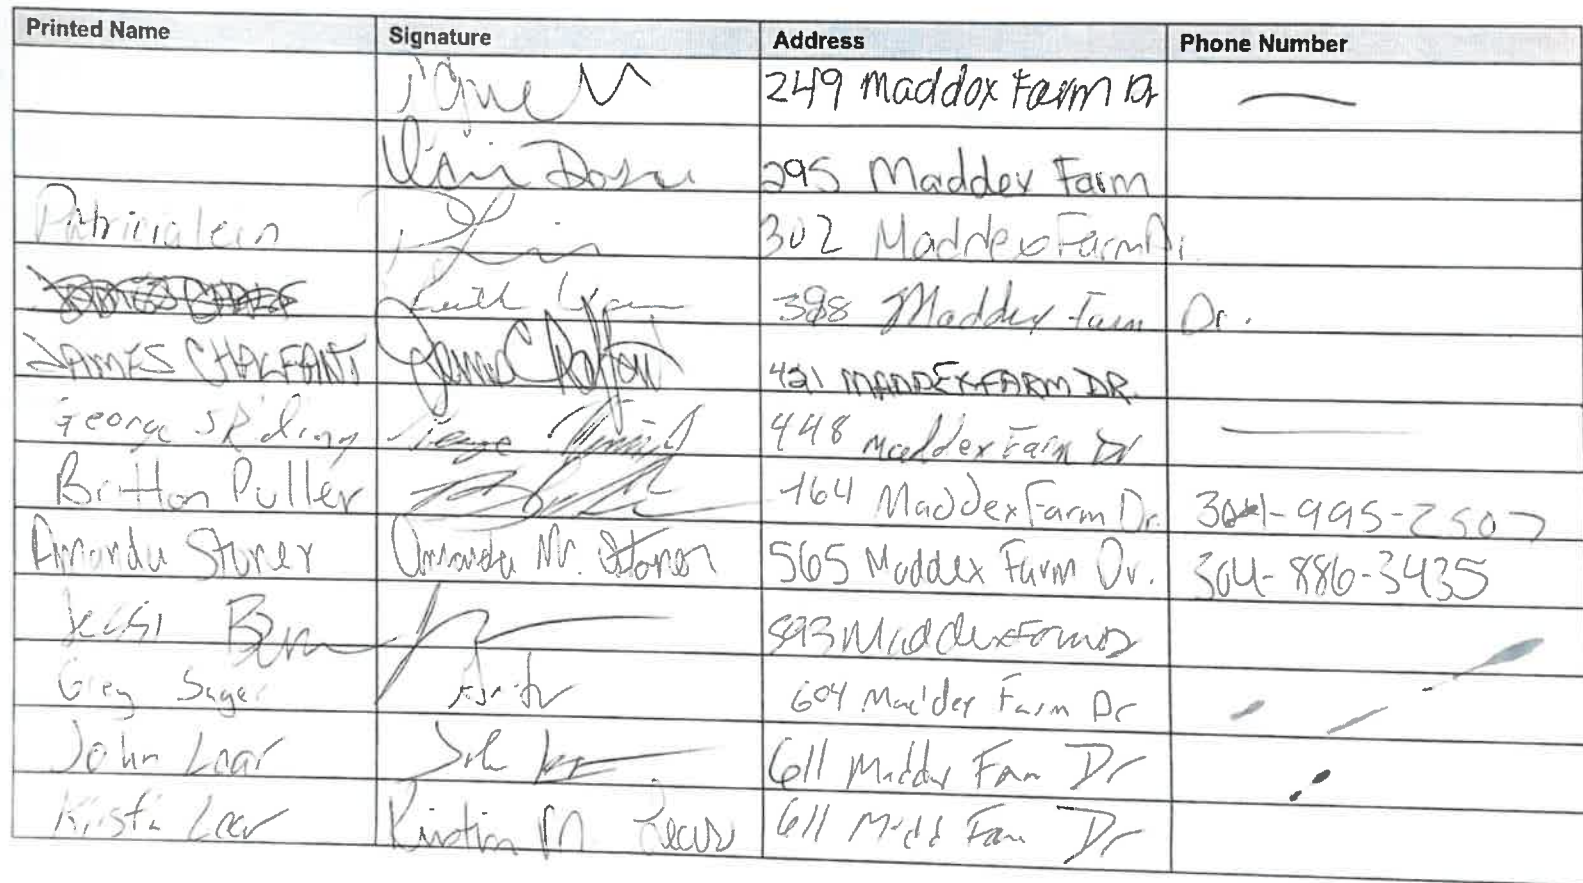 Printed Name Signature Address Phone Number
249 Maddox Farm Dr
295 Maddex Farm
302 Maddex Farm Dr.
398 Maddex Farm Dr.
JAMES CHALFANT James Chalfant 421 MADDEX FARM DR.
George S Ridings George 448 Maddex Farm Dr
Britton Puller 464 Maddex Farm Dr. 304-995-2507
Amanda Stoner Amanda M. Stoner 565 Maddex Farm Dr. 304-886-3435
593 Maddex Farm Dr
Greg Sager 604 Maddex Farm Dr
John Loar John 611 Maddex Farm Dr
Kristin Loar Kristin M Loar 611 Madd Farm Dr